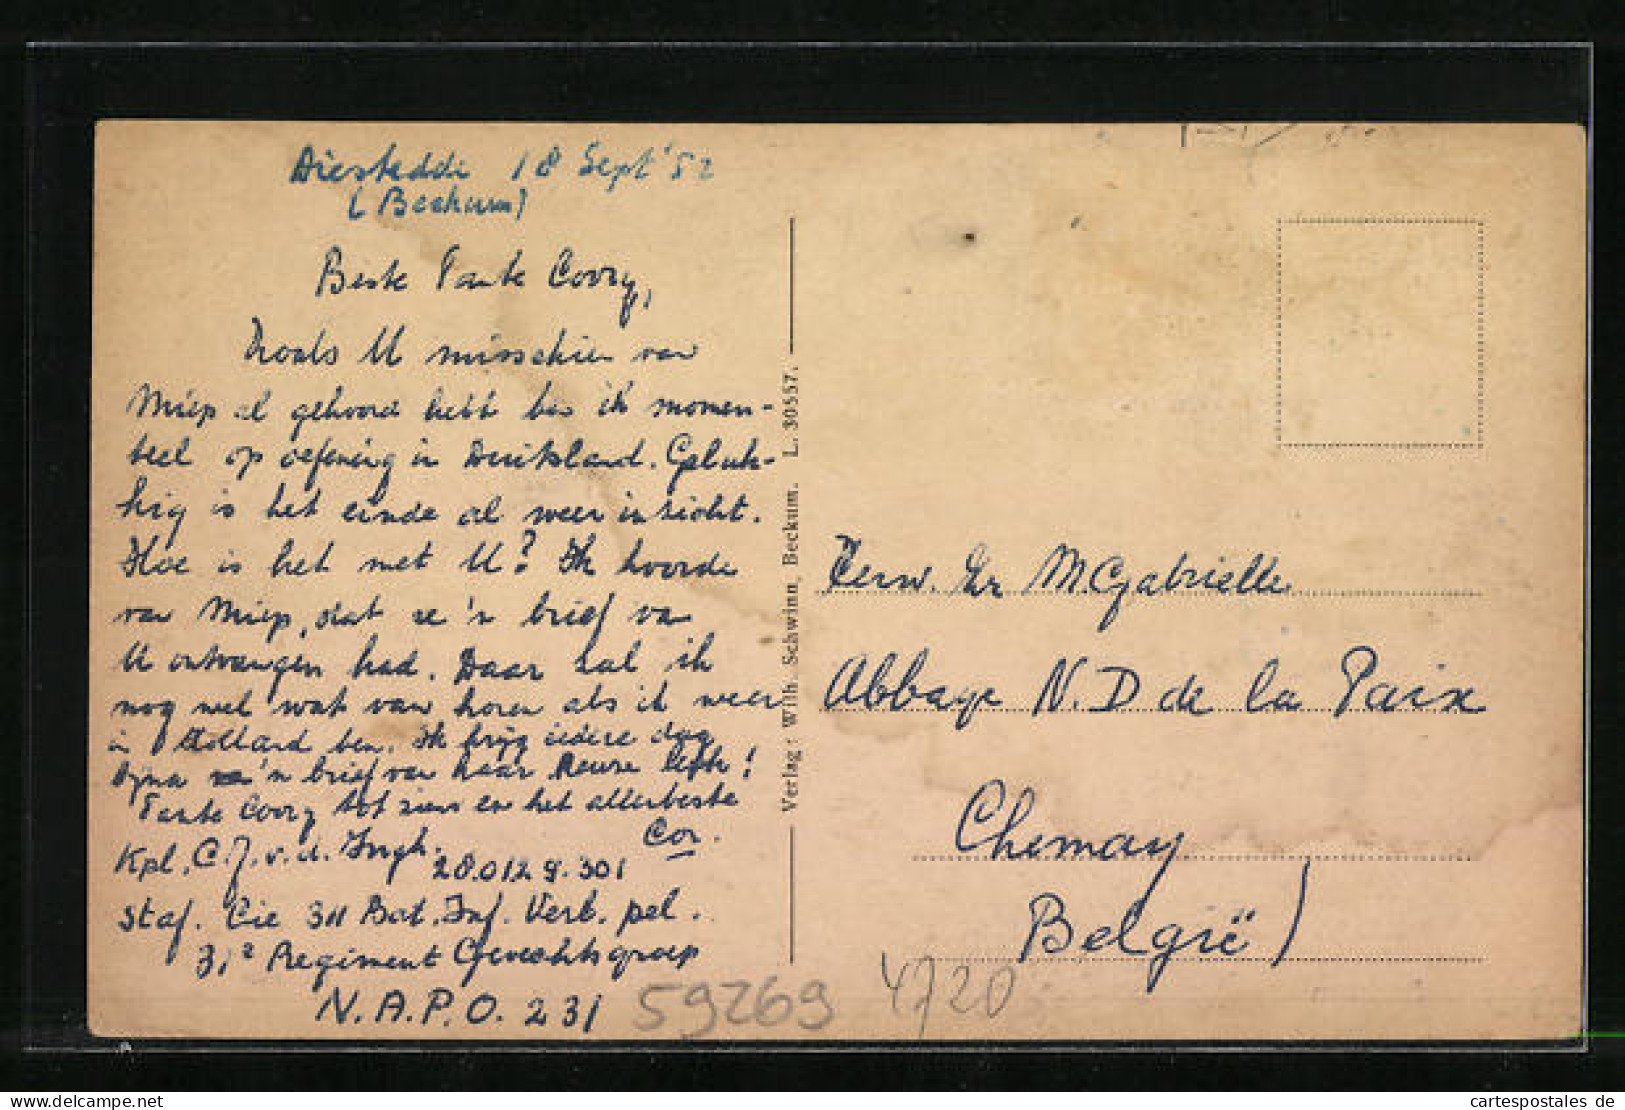 Diestedde 18 Sept '52
(Beckum)
Beste Tante Corry,
Zoals U misschien van
Miep al gehoord hebt ben ik momen-
teel op oefening in Duitsland. Geluk-
kig is het einde al weer in zicht.
Hoe is het met U? Ik hoorde
van Miep, dat ze 'n brief van
U ontvangen had. Daar zal ik
nog wel wat van horen als ik weer
in Holland ben. Ik krijg iedere dag
bijna 'n brief van haar. Reuze leuk!
Tante Corry tot ziens en het allerbeste
Cor.
Kpl. C.J. v.d. Jngh.
28.012 9.301
Staf. Cie 311 Bat. Inf. Verb. pel.
31e Regiment Gevechtsgroep
N.A.P.O. 231
Verlag: Wilh. Schwinn, Beckum. L. 30557.
Eerw. Zr M. Gabrielle
Abbaye N.D de la Paix
Chemay
België)
59269 4720
cartespostales de